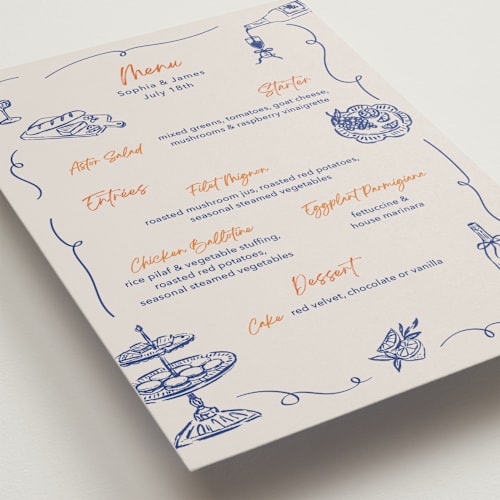 Menu
Sophia & James
July 18th
Starter
Astor Salad
mixed greens, tomatoes, goat cheese,
mushrooms & raspberry vinaigrette
Entrées
Filet Mignon
roasted mushroom jus, roasted red potatoes,
seasonal steamed vegetables
Chicken Ballotine
rice pilaf & vegetable stuffing,
roasted red potatoes,
seasonal steamed vegetables
Eggplant Parmigiana
fettuccine &
house marinara
Dessert
Cake
red velvet, chocolate or vanilla